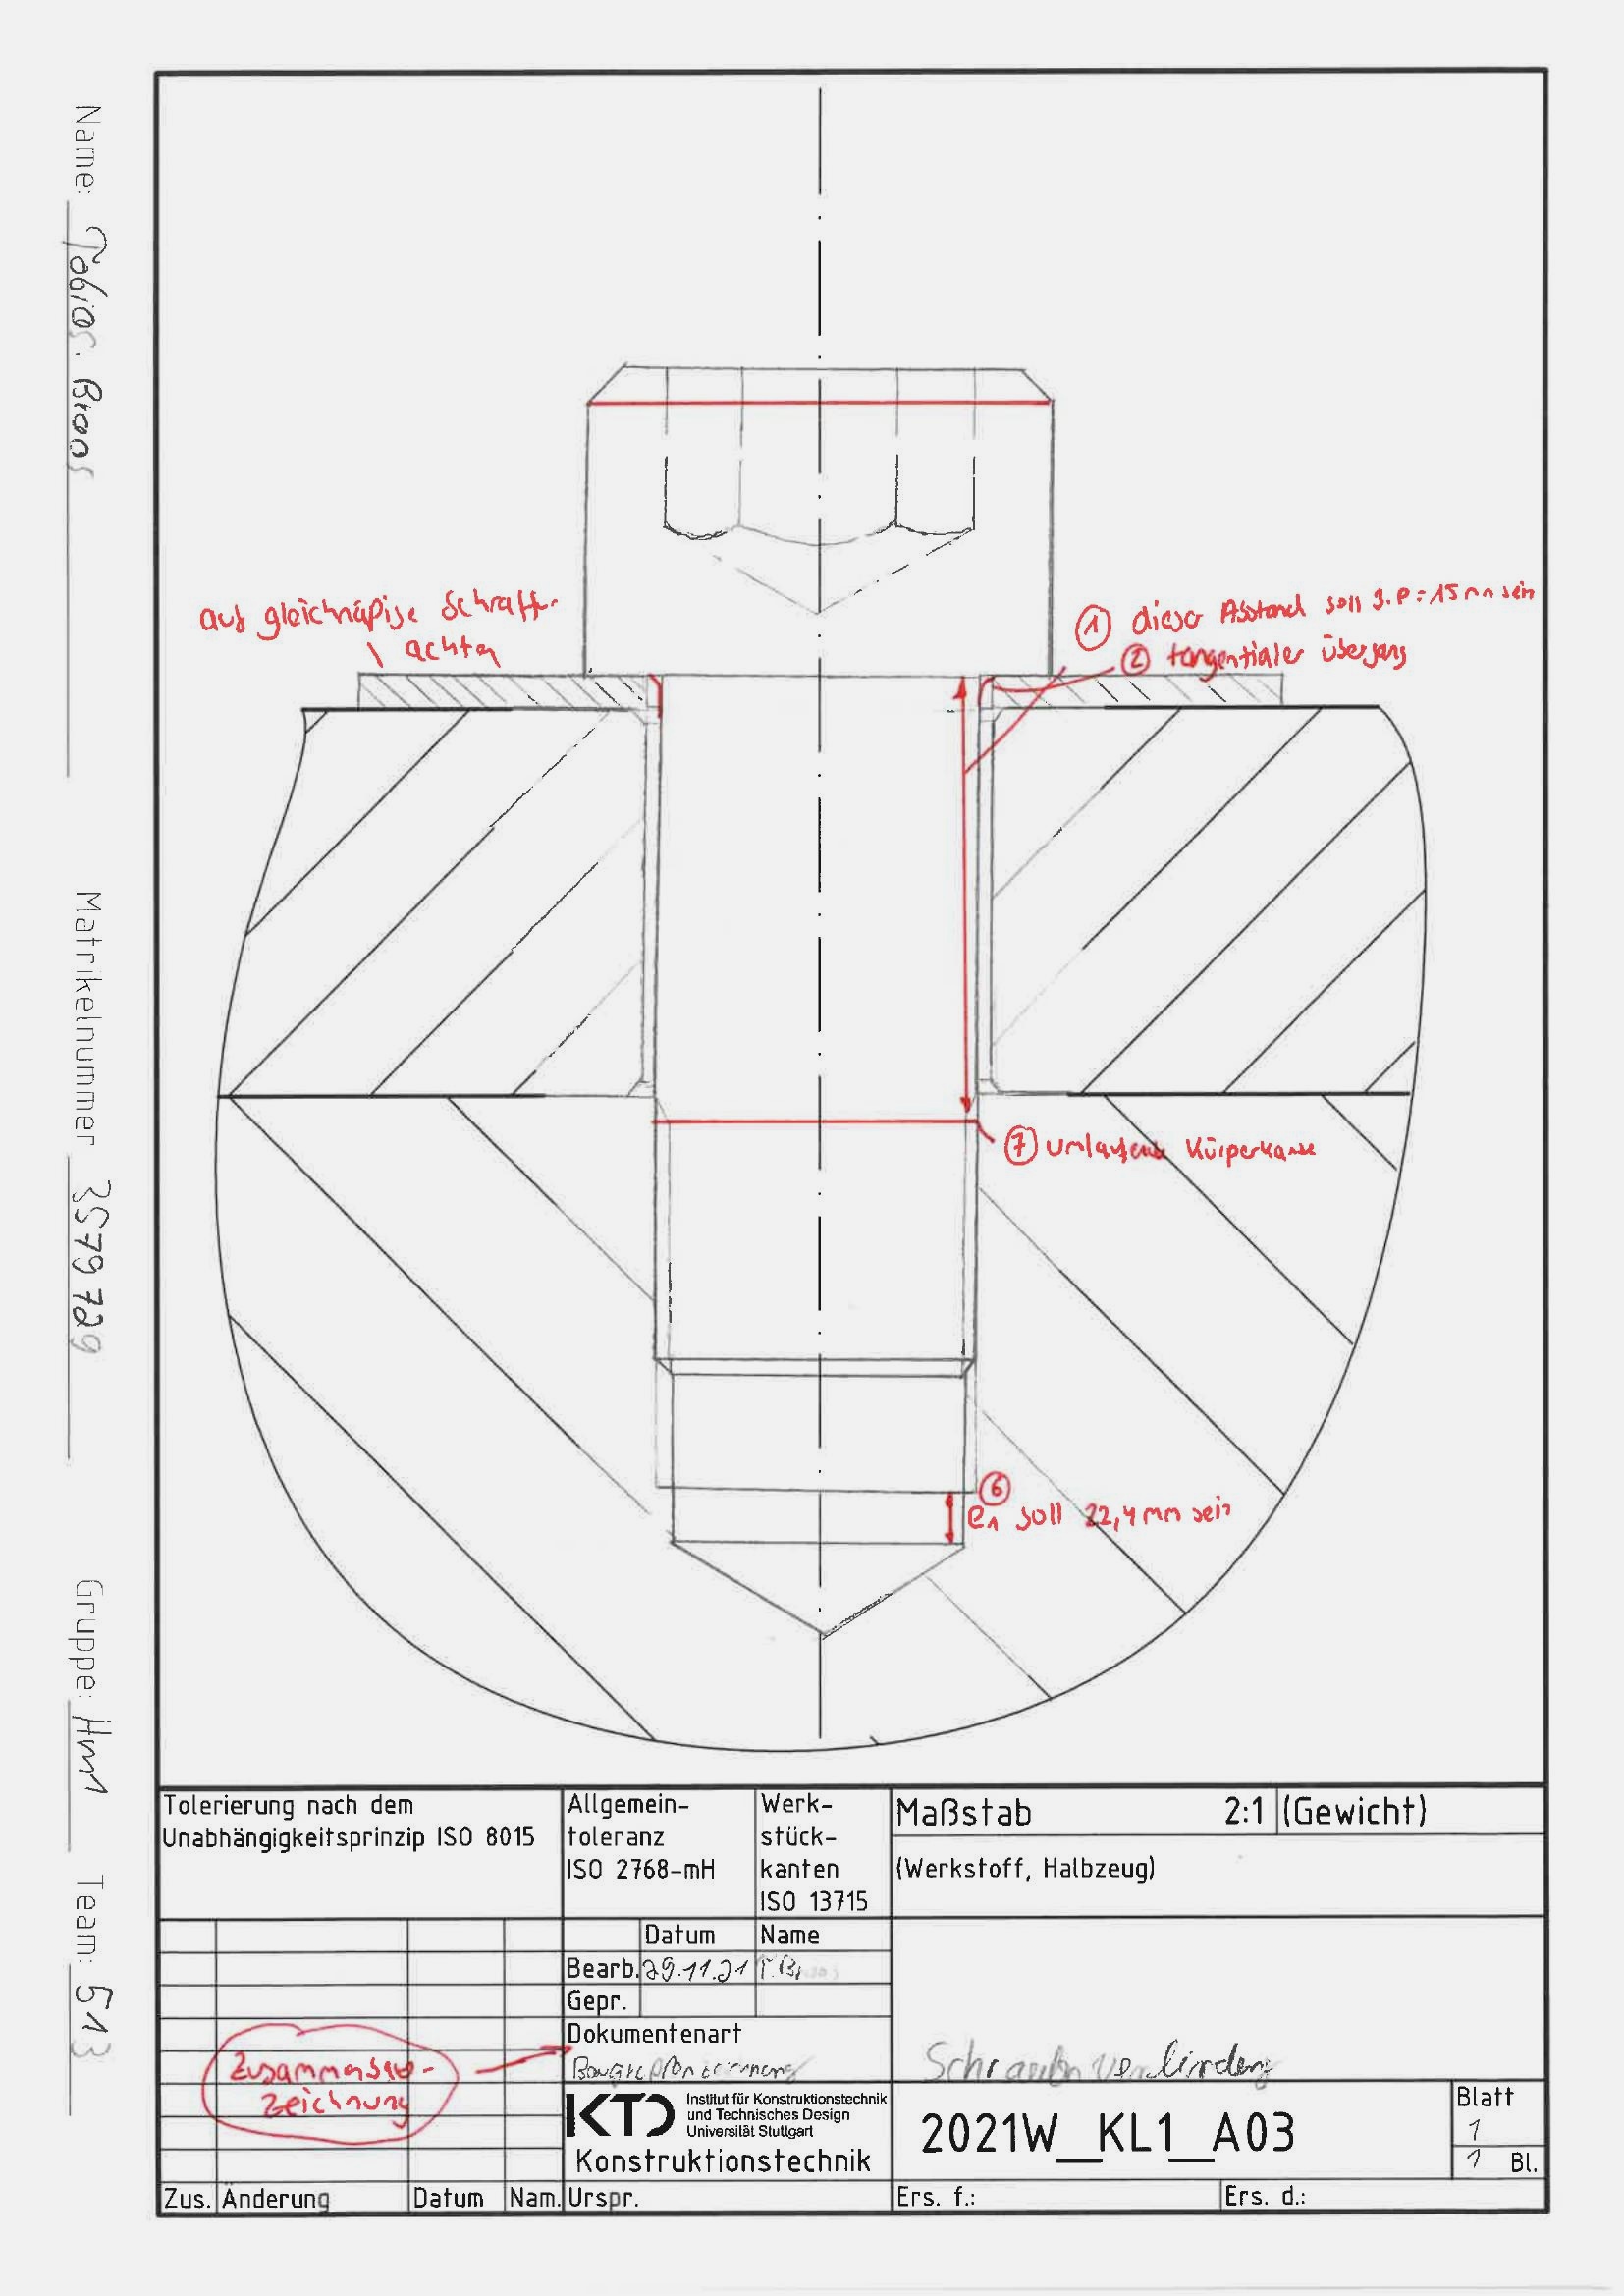 Name: Tobias. Broos
Matrikelnummer 3579729
Gruppe: Hm1
Team: 513
auf gleichmäßige Schraff.
achten
① dieser Abstand soll 3.P=15mm sein
② tangentialer übergang
⑦ umlaufende Körperkante
⑥
e1 soll 22,4mm sein
Tolerierung nach dem
Unabhängigkeitsprinzip ISO 8015
Allgemein-
toleranz
ISO 2768-mH
Werk-
stück-
kanten
ISO 13715
Maßstab 2:1 (Gewicht)
(Werkstoff, Halbzeug)
Datum Name
Bearb. 29.11.21
Gepr.
Dokumentenart
Zusammenbau-
Zeichnung
Schraubenverbindung
KTD Institut für Konstruktionstechnik
und Technisches Design
Universität Stuttgart
Konstruktionstechnik
2021W_KL1_A03
Blatt
1
1 Bl.
Zus. Änderung Datum Nam. Urspr. Ers. f.: Ers. d.: